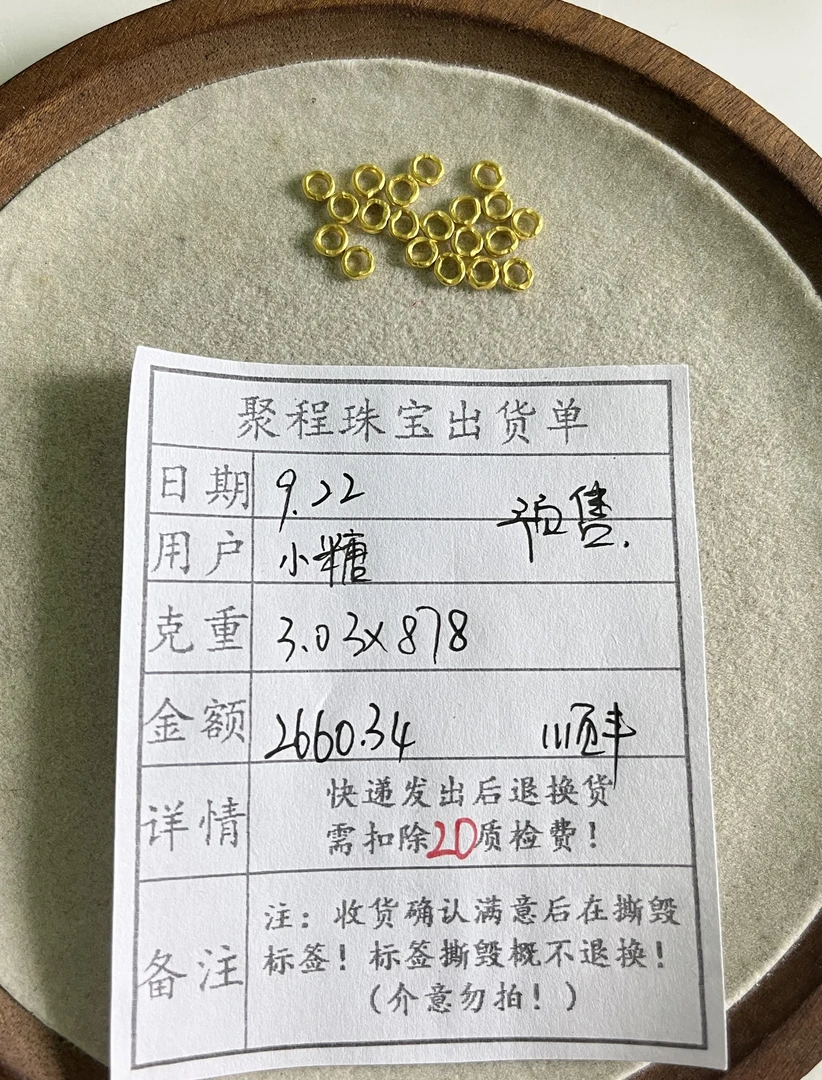 聚程珠宝出货单
日期 9.22 预售.
用户 小糖
克重 3.03×878
金额 2660.34 顺丰
详情 快递发出后退换货
需扣除20质检费！
备注 注：收货确认满意后在撕毁
标签！标签撕毁概不退换！
（介意勿拍！）